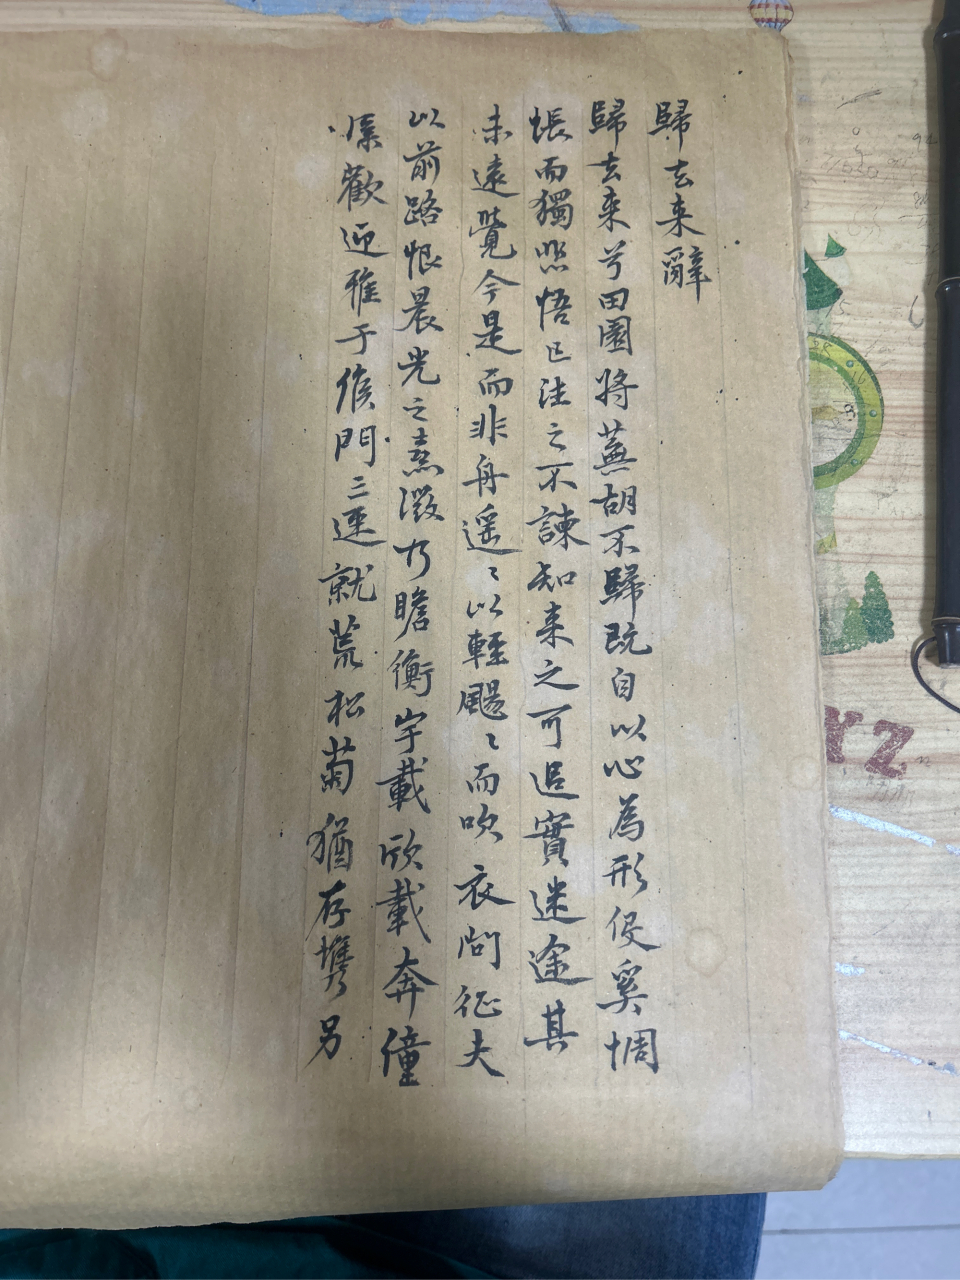 歸去来辭
歸去来兮田園將蕪胡不歸既自以心為形役奚惆
悵而獨悲悟已往之不諫知来之可追實迷途其
未遠覺今是而非舟遥〻以輕颺〻而吹衣問征夫
以前路恨晨光之熹微乃瞻衡宇載欣載奔僮
僕歡迎稚子候門三逕就荒松菊猶存携另
YZ